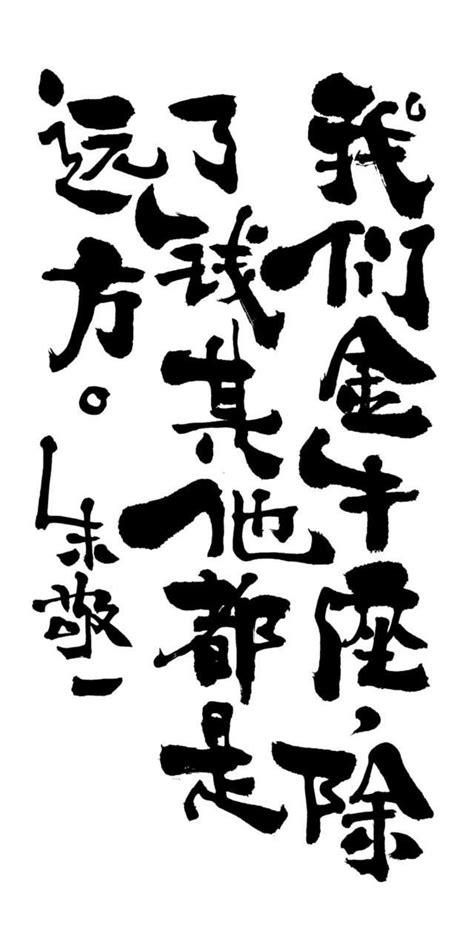 我们金牛座，除
了钱其他都是
远方。朱敬一